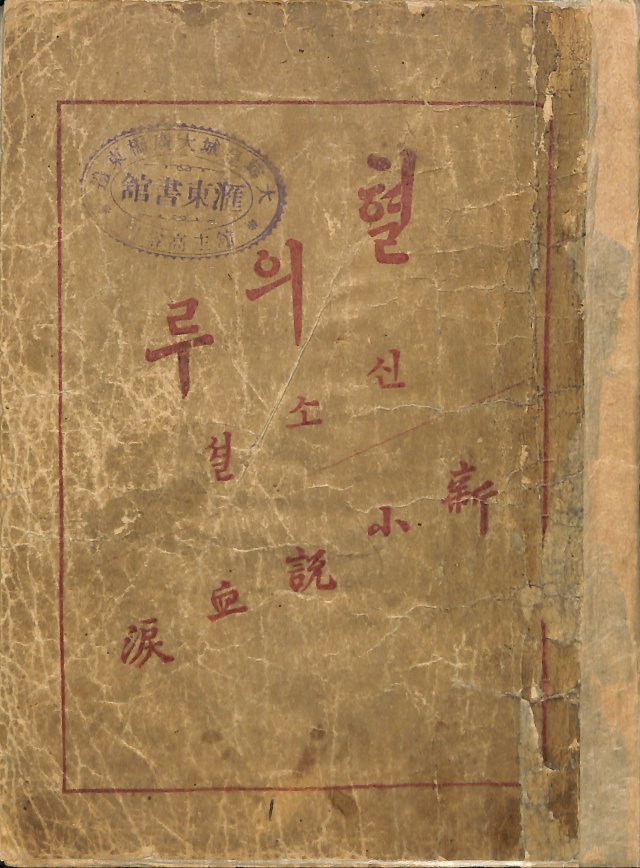 滙東書館
혈의루
신소셜
新小說血淚